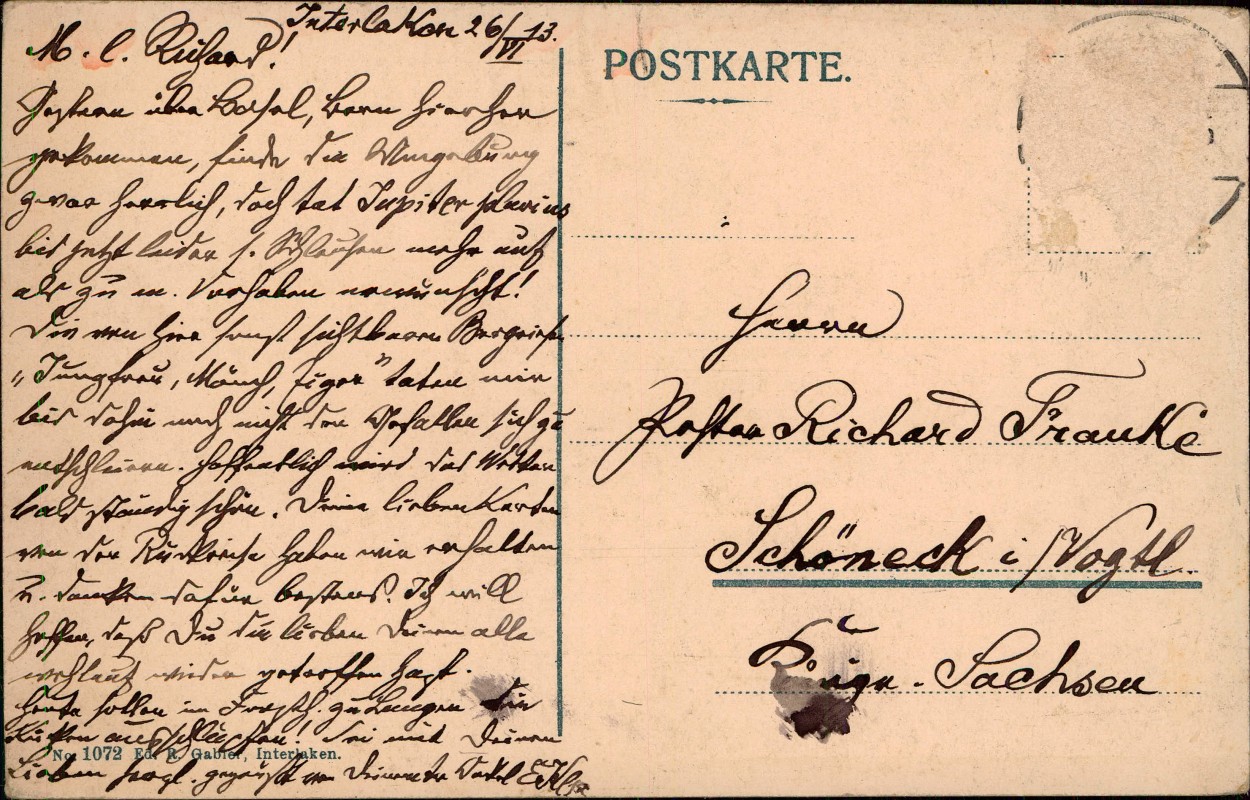 Interlaken 26/VI 13.
M. l. Richard!
Gestern über Basel, Bern hierher
gekommen, finde die Umgebung
zwar herrlich, doch tat Jupiter pluvius
bis jetzt leider s. Schleusen mehr auf
als zu m. Vorhaben erwünscht!
Die von hier sonst sichtbaren Bergriesen
„Jungfrau, Mönch, Eiger" taten mir
bis dahin noch nicht den Gefallen sich zu
entschleiern. Hoffentlich wird das Wetter
bald ständig schön. Deine lieben Karten
von der Rückreise haben wir erhalten
u. danken dafür bestens. Ich will
hoffen, daß Du die lieben Deinen alle
wohlauf wieder getroffen hast.
Heute sollen im Forsth. zu Langen die
Kücken ausschlüpfen! Sei mit Deinen
Lieben herzl. gegrüßt von Deinem tr. Onkel
POSTKARTE.
Herrn
Pastor Richard Franke
Schöneck i/Vogtl
Königr. Sachsen
No. 1072 Ed. R. Gabler, Interlaken.